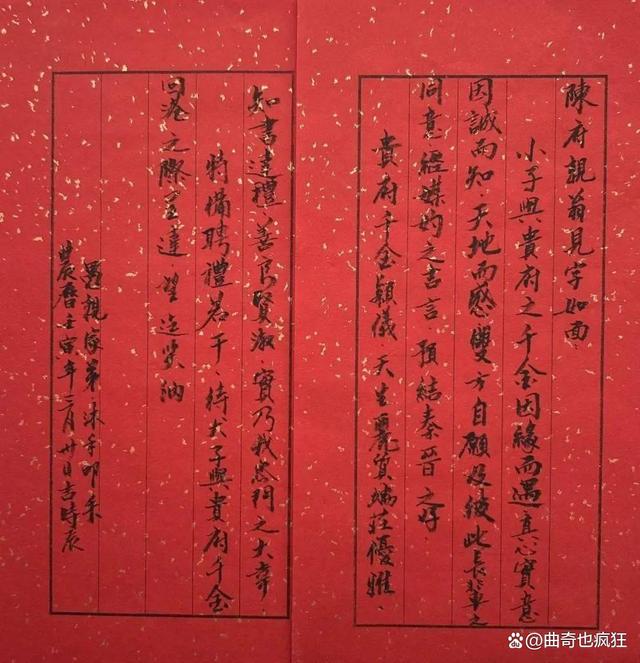 陳府親翁見字如面:
小子與貴府之千金因緣而遇真心實意
因誠而知天地而感雙方自願及彼此長輩之
同意經媒妁之吉言預結秦晉之好
貴府千金穎儀天生麗質端莊優雅
知書達禮善良賢淑實乃我忠門之大幸
特備聘禮若干待犬子與貴府千金
回港之際呈達望造笑納
愚親家弟沐手叩奉
農曆壬寅年二月廿日吉時辰
曲奇也疯狂